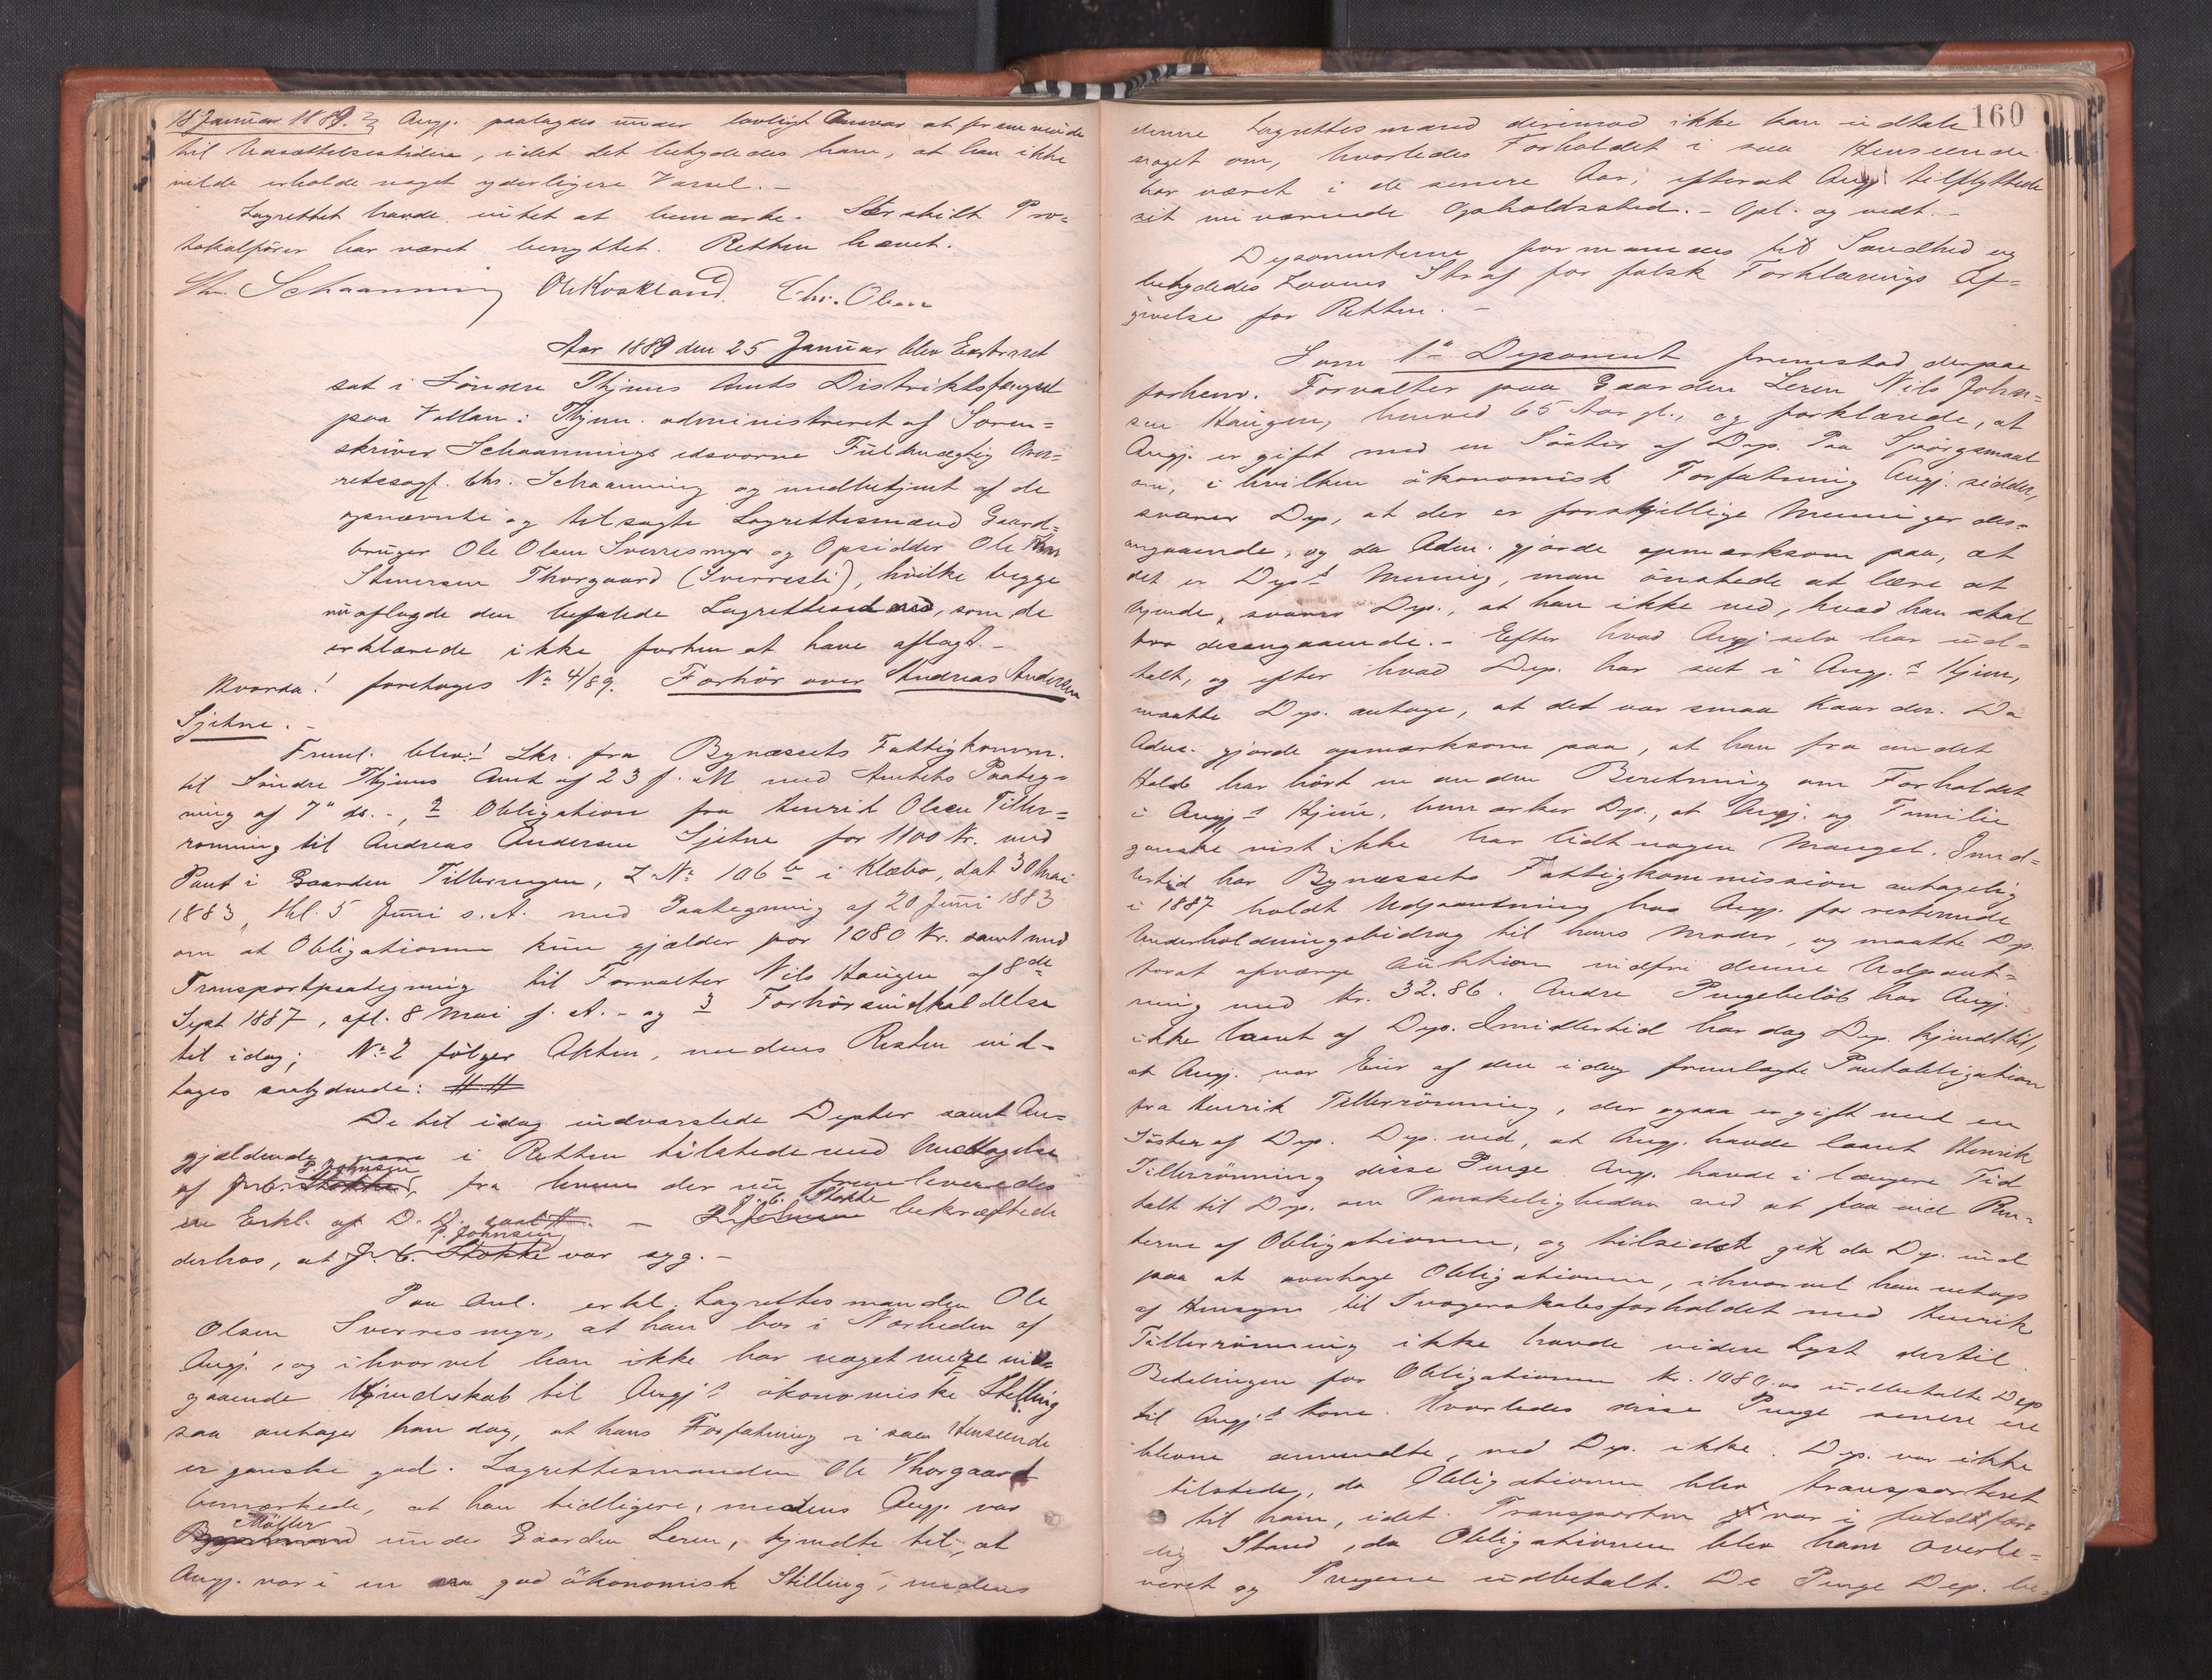 18 Januar 1889. Angj. paalagdes under lovligt Ansvar at fremmøde
til Udsættelsestiden, idet det betydedes ham, at han ikke
vilde erholde noget yderligere Varsel. –
Lagrettet havde intet at bemærke. Særskilt Pro-
tokolfører har været benyttet. Retten hævet.
Chr. Schaanning Ole Kvakland. Chr. Olsen
Aar 1889 den 25 Januar blev Extraret
sat i Søndre Thjems Amts Distriktsfængsel
paa Vollan i Thjem administreret af Soren-
skriver Schaannings edsvorne Fuldmægtig Over-
retssagf. Chr. Schaanning og medbetjent af de
opnævnte og tilsagte Lagrettesmænd Gaard-
bruger Ole Olsen Sverresmyr og Opsidder Ole
Stenersen Thorgaard (Sverresli), hvilke begge
nu aflagde den befalede Lagretteseed, som de
erklærede ikke forhen at have aflagt. –
Hvorda! foretoges No 4/89. Forhør over Andreas Andersen
Sjetne. –
Freml. blev: 1 Skr. fra Bynæssets Fattigkomm.
til Søndre Thjems Amt af 23 f. M. med Amtets Paateg-
ning af 7 ds. –, 2 Obligation fra Henrik Olsen Tiller-
rønning til Andreas Andersen Sjetne for 1100 Kr. med
Pant i Gaarden Tillerringen, L No 106 b i Klæbo, dat 30 Mai
1883, thl. 5 Juni s. A. med Paategning af 20 Juni 1883
om at Obligationen kun gjælder for 1080 Kr. samt med
Transportpaategning til Forvalter Nils Haugen af 8de
Sept 1887, afl. 8 Mai f. A. – og 3 Forhørsindkaldelse
til idag; No 2 følger Akten, medens Resten ind-
tages saalydende: # #
De til idag indvarslede Depter samt An-
gjældende vare i Retten tilstede med Undtagelse
af J. C. Stokke P. Johnsen, fra hvem der nu fremleveredes
en Erkl. af D. D. saal #. – P. Johnsen J. C. Stokke bekræftede
derhos, at J. C. Stokke P. Johnsen var syg. –
Paa Anl. erkl. Lagrettesmanden Ole
Olsen Sverresmyr, at han bor i Nærheden af
Angj., og ihvorvel han ikke har noget mere ind-
gaaende Kjendskab til Angj.s økonomiske Stilling
saa antager han dog, at hans Forfatning i saa Henseende
er ganske god. Lagrettesmanden Ole Thorgaard
bemærkede, at han tidligere, medens Angj. var
Møller under Gaarden Leren, kjendte til, at
Angj. var i en god økonomisk Stilling, medens
160
denne Lagrettesmand derimod ikke kan udtale
noget om, hvorledes Forholdet i saa Henseende
har været i de senere Aar, efterat Angj tilflyttede
sit nuværende Opholdssted. – Opl. og vedt. –
Deponenterne formanedes til Sandhed og
betydedes Lovens Straf for falsk Forklarings Af-
givelse for Retten. –
Som 1ste Deponent fremstod derpaa
forhenv. Forvalter paa Gaarden Leren Nils John-
sen Haugen, henved 65 Aar gl., og forklarede, at
Angj. er gift med en Søster af Dep. Paa Spørgsmaal
om, i hvilken økonomisk Forfatning Angj. sidder,
svarer Dep, at der er forskjellige Meninger des-
angaaende, og da Adm. gjorde opmærksom paa, at
det er Deps Mening, man ønskede at lære at
kjende, svarer Dep., at han ikke ved, hvad han skal
tro desangaaende. – Efter hvad Angj selv har ud-
talt, og efter hvad Dep. har set i Angj.s Hjem,
maatte Dep. antage, at det var smaa Kaar der. Da
Adm. gjorde opmærksom paa, at han fra andet
Hold har hørt en anden Beretning om Forholdet
i Angjs Hjem, bemærker Dep., at Angj. og Familie
ganske vist ikke har lidt nogen Mangel. Imid-
lertid har Bynæssets Fattigkommission antagelig
i 1887 holdt Udpantning hos Angj. for resterende
Underholdningsbidrag til hans Moder, og maatte Dep.
torat afværge Auktion indfri denne Udpant-
ning med Kr. 32.86. Andre Pengebeløb har Angj.
ikke laant af Dep. Imidlertid har dog Dep. kjendt til,
at Angj. var Eier af den idag fremlagte Pantobligation
fra Henrik Tillerrønning, der ogsaa er gift med en
Søster af Dep. Dep. ved, at Angj. havde laant Henrik
Tillerrønning disse Penge. Angj. havde i længere Tid
talt til Dep. om Vanskeligheden ved at faa ind Ren-
terne af Obligationen, og tilsidst gik da Dep. ind
paa at overtage Obligationen, ihvorvel han netop
af Hensyn til Svogerskabsforholdet med Henrik
Tillerrønning ikke havde videre Lyst dertil.
Betalingen for Obligationen Kr. 1080.00 udbetalte Dep
til Angj.s Kone. Hvorledes disse Penge senere ere
blevne anvendte, ved Dep. ikke. Dep. var ikke
tilstede, da Obligationen blev transporteret
til ham, idet Transporten var i fuldt fær-
dig Stand, da Obligationen blev ham overle-
veret og Pengene udbetalt. De Penge Dep. be-